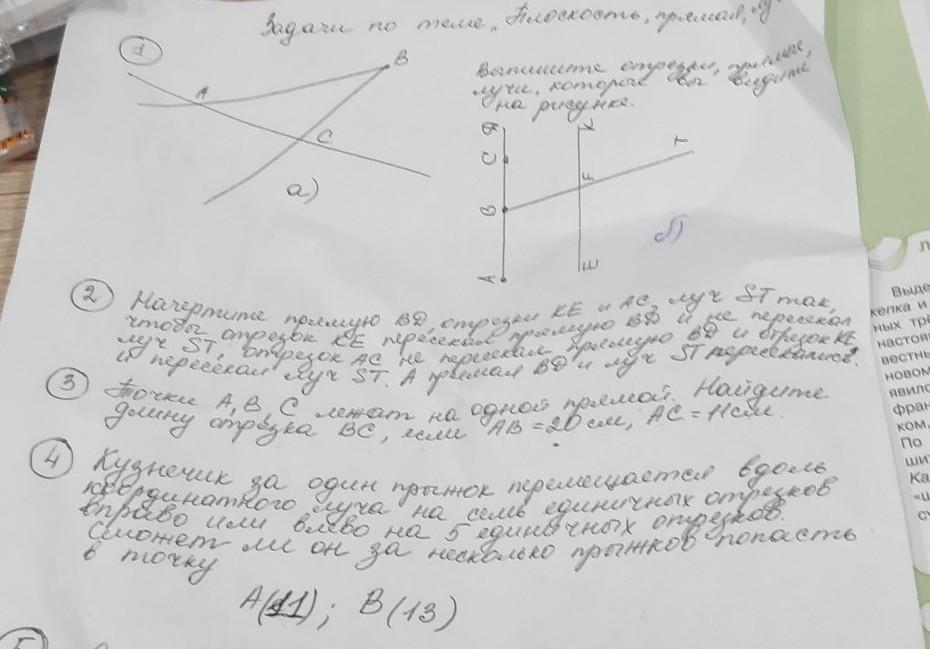 Задачи по теме „Плоскость, прямая, лу
1
B
A
C
а)
Выпишите отрезки, прямые,
лучи, которые вы видите
на рисунке.
C
K
B
F
T
A
E
б)
2 Начертите прямую BD, отрезки KE и AC, луч ST так,
чтобы отрезок KE пересекал прямую BD и не пересекал
луч ST, отрезок AC не пересекал прямую BD и отрезок KE
и пересекал луч ST. А прямая BD и луч ST пересекались.
3 Точки A, B, C лежат на одной прямой. Найдите
длину отрезка BC, если AB = 20 см, AC = 11 см.
4 Кузнечик за один прыжок перемещается вдоль
координатного луча на семь единичных отрезков
вправо или влево на 5 единичных отрезков.
Сможет ли он за несколько прыжков попасть
в точку
A(11); B(13)
5
Л
Выде
кепка и
ных трё
настоя
вестны
новом
явило
фран
ком,
По
шит
Ка
«ш